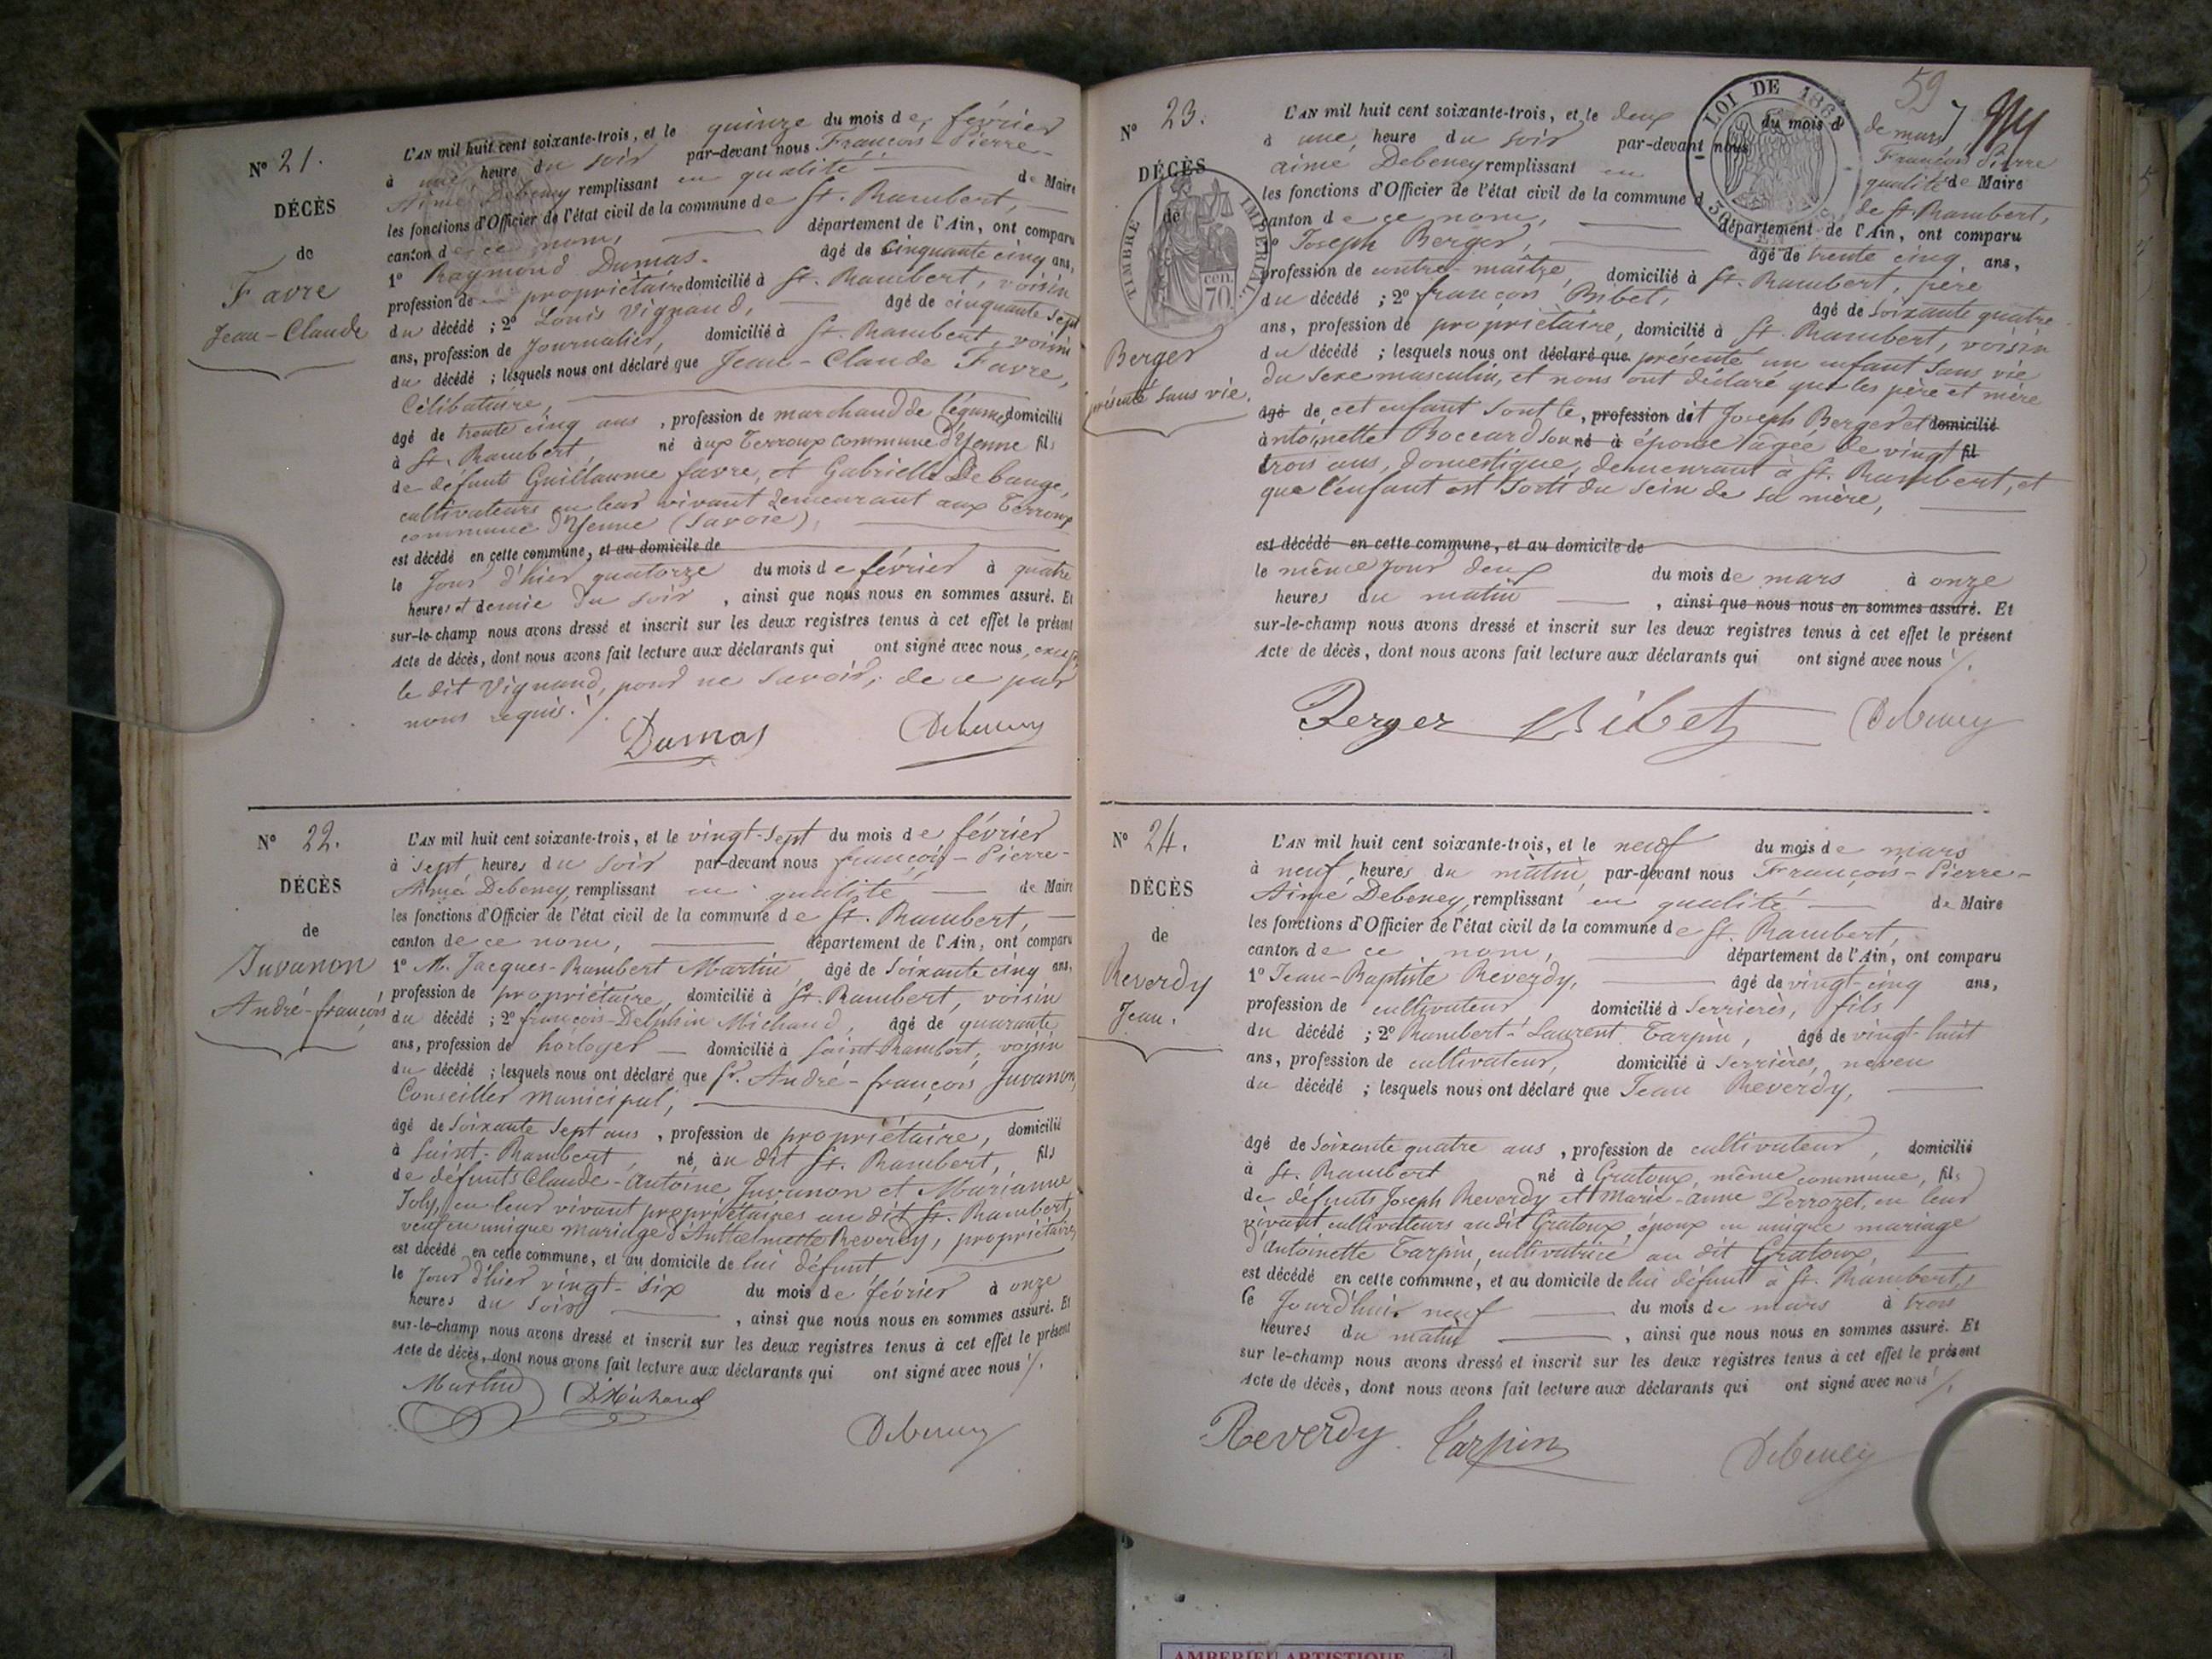 N° 21.
DÉCÈS
de
Favre
Jean-Claude
L'AN mil huit cent soixante-trois, et le quinze du mois de février
à une heure du soir par-devant nous François-Pierre-
Aimé Debeney remplissant en qualité de Maire
les fonctions d'Officier de l'état civil de la commune de St. Rambert,
canton de ce nom, département de l'Ain, ont comparu
1° Raymond Dumas. âgé de cinquante cinq ans,
profession de propriétaire domicilié à St. Rambert, voisin
du décédé ; 2° Louis Vignand, âgé de cinquante sept
ans, profession de Journalier, domicilié à St. Rambert, voisin
du décédé ; lesquels nous ont déclaré que Jean-Claude Favre,
Célibataire,
âgé de trente cinq ans, profession de marchand de légumes domicilié
à St. Rambert, né aux Terroux commune d'Yenne fils
de défunts Guillaume favre, et Gabrielle Debauge,
cultivateurs en leur vivant demeurant aux Terroux
commune d'Yenne (Savoie),
est décédé en cette commune, et au domicile de
le Jour d'hier quatorze du mois de février à quatre
heures et demie du soir, ainsi que nous nous en sommes assuré. Et
sur-le-champ nous avons dressé et inscrit sur les deux registres tenus à cet effet le présent
Acte de décès, dont nous avons fait lecture aux déclarants qui ont signé avec nous, excepté
le dit Vignand, pour ne savoir, de ce par
nous requis./.
Dumas Debeney
N° 22.
DÉCÈS
de
Juvanon,
André-françois
L'AN mil huit cent soixante-trois, et le vingt-sept du mois de février
à sept heures du soir par-devant nous françois-Pierre-
Aimé Debeney, remplissant en qualité de Maire
les fonctions d'Officier de l'état civil de la commune de St. Rambert,
canton de ce nom, département de l'Ain, ont comparu
1° M. Jacques-Rambert Martin âgé de Soixante cinq ans,
profession de propriétaire, domicilié à St. Rambert, voisin
du décédé ; 2° françois-Delphin Michaud, âgé de quarante
ans, profession de horloger domicilié à Saint-Rambert, voisin
du décédé ; lesquels nous ont déclaré que Sr. André-françois Juvanon,
Conseiller Municipal,
âgé de Soixante Sept ans, profession de propriétaire, domicilié
à Saint-Rambert, né, au dit St. Rambert, fils
de défunts Claude-Antoine Juvanon et Marianne
Joly, en leur vivant propriétaires au dit St. Rambert,
veuf en unique mariage d' Reverdy, propriétaire,
est décédé en cette commune, et au domicile de lui défunt
le Jour d'hier vingt-six du mois de février à onze
heures du Soir, ainsi que nous nous en sommes assuré. Et
sur-le-champ nous avons dressé et inscrit sur les deux registres tenus à cet effet le présent
Acte de décès, dont nous avons fait lecture aux déclarants qui ont signé avec nous./.
Martin D Michaud
Debeney
59
N° 23.
DÉCÈS
de
TIMBRE IMPÉRIAL
70 cen.
LOI DE 186
Berger
présenté sans vie.
L'AN mil huit cent soixante-trois, et le deux du mois d de mars
à une heure du soir par-devant nous François Pierre
aimé Debeney remplissant en qualité de Maire
les fonctions d'Officier de l'état civil de la commune d de St. Rambert,
canton de ce nom, département de l'Ain, ont comparu
1° Joseph Berger, âgé de trente cinq ans,
profession de contre-maître, domicilié à St. Rambert, père
du décédé ; 2° françois Bibet, âgé de soixante quatre
ans, profession de propriétaire, domicilié à St. Rambert, voisin
du décédé ; lesquels nous ont déclaré que présenté un enfant sans vie
du Sexe masculin, et nous ont déclaré que les père et mère
âgé de cet enfant sont le, profession dit Joseph Berger et domicilié
antoinette Boccard son né à épouse âgée de vingt fil
trois ans, domestique, demeurant à St. Rambert, et
que l'enfant est sorti du sein de sa mère,
est décédé en cette commune, et au domicile de
le même jour deux du mois de mars à onze
heures du matin, ainsi que nous nous en sommes assuré. Et
sur-le-champ nous avons dressé et inscrit sur les deux registres tenus à cet effet le présent
Acte de décès, dont nous avons fait lecture aux déclarants qui ont signé avec nous./.
Berger Bibet Debeney
N° 24.
DÉCÈS
de
Reverdy
Jean.
L'AN mil huit cent soixante-trois, et le neuf du mois de mars
à neuf heures du matin par-devant nous François-Pierre-
Aimé Debeney, remplissant en qualité de Maire
les fonctions d'Officier de l'état civil de la commune de St. Rambert,
canton de ce nom, département de l'Ain, ont comparu
1° Jean-Baptiste Reverdy, âgé de vingt-cinq ans,
profession de cultivateur domicilié à Serrières, fils
du décédé ; 2° Rambert-Laurent Tarpin, âgé de vingt-huit
ans, profession de cultivateur, domicilié à Serrières, neveu
du décédé ; lesquels nous ont déclaré que Jean Reverdy,
âgé de Soixante quatre ans, profession de cultivateur, domicilié
à St. Rambert né à Gratoux, même commune, fils
de défunts Joseph Reverdy et Marie-anne Perrozet, en leur
vivant cultivateurs audit Gratoux, époux en unique mariage
d'Antoinette Tarpin, cultivatrice au dit Gratoux,
est décédé en cette commune, et au domicile de lui défunt à St. Rambert,
le Jourd'hui neuf du mois de mars à trois
heures du matin, ainsi que nous nous en sommes assuré. Et
sur le-champ nous avons dressé et inscrit sur les deux registres tenus à cet effet le présent
Acte de décès, dont nous avons fait lecture aux déclarants qui ont signé avec nous./.
Reverdy Tarpin Debeney
AMBERIEU ARTISTIQUE